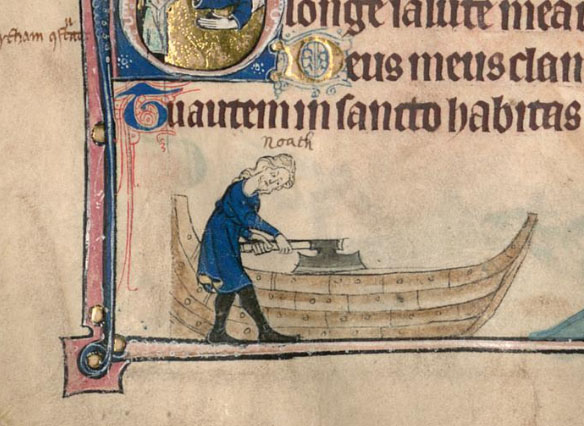 longe salute mea
Deus meus clam
Tu autem in sancto habitas
Noath